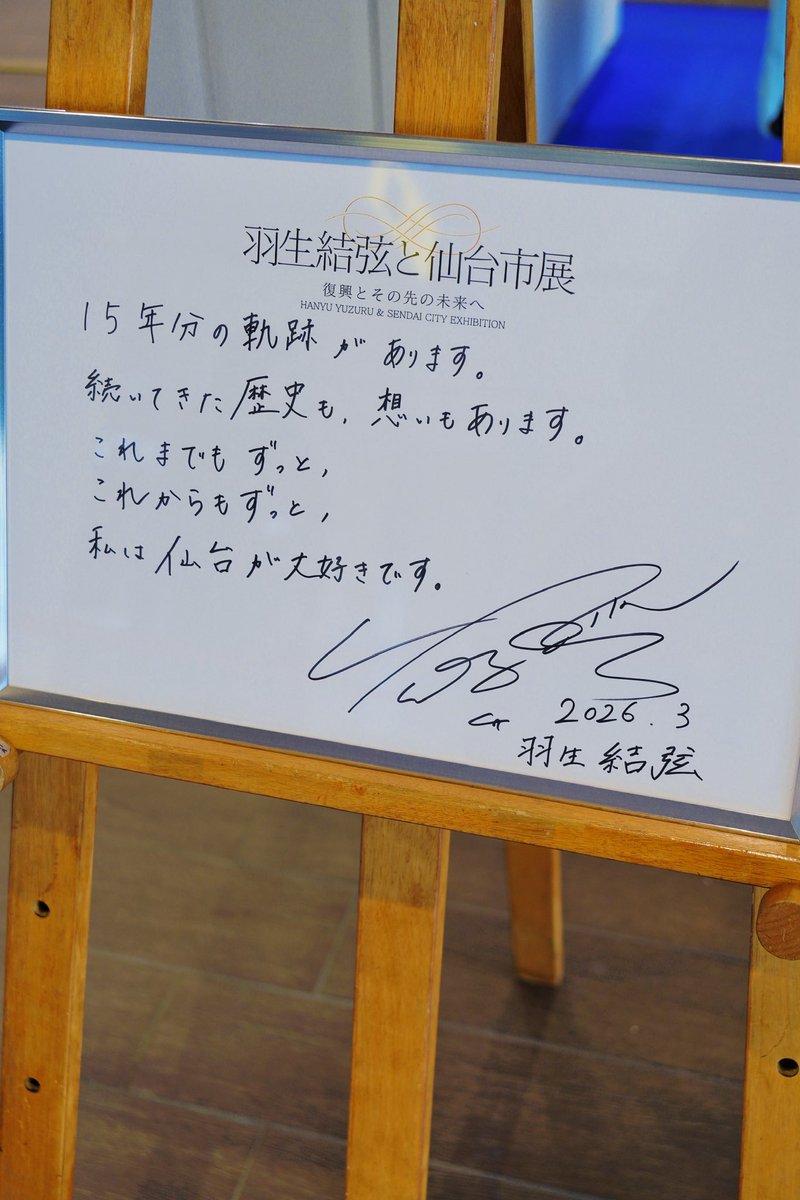 羽生結弦と仙台市展
復興とその先の未来へ
HANYU YUZURU & SENDAI CITY EXHIBITION
15年分の軌跡があります。
続いてきた歴史も、想いもあります。
これまでもずっと、
これからもずっと、
私は仙台が大好きです。
2026.3
羽生結弦